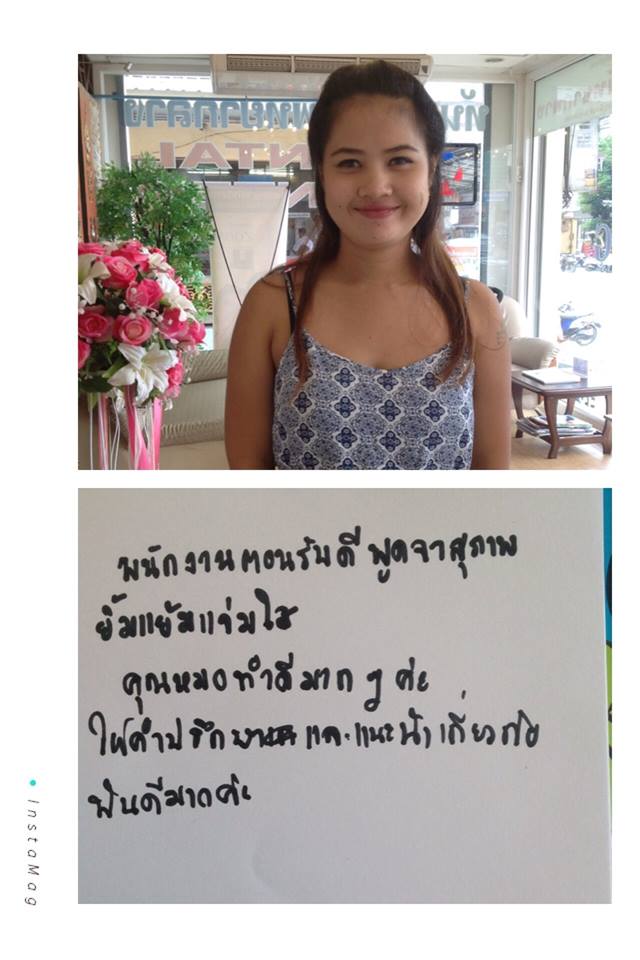 พัทยากลาง
พนักงานตอนรับดี พูดจาสุภาพ
ยิ้มแย้มแจ่มใส
คุณหมอทำดีมาก ๆ ค่ะ
ให้คำปรึกษา และแนะนำเกี่ยวกับ
ฟันดีมากค่ะ
InstaMag